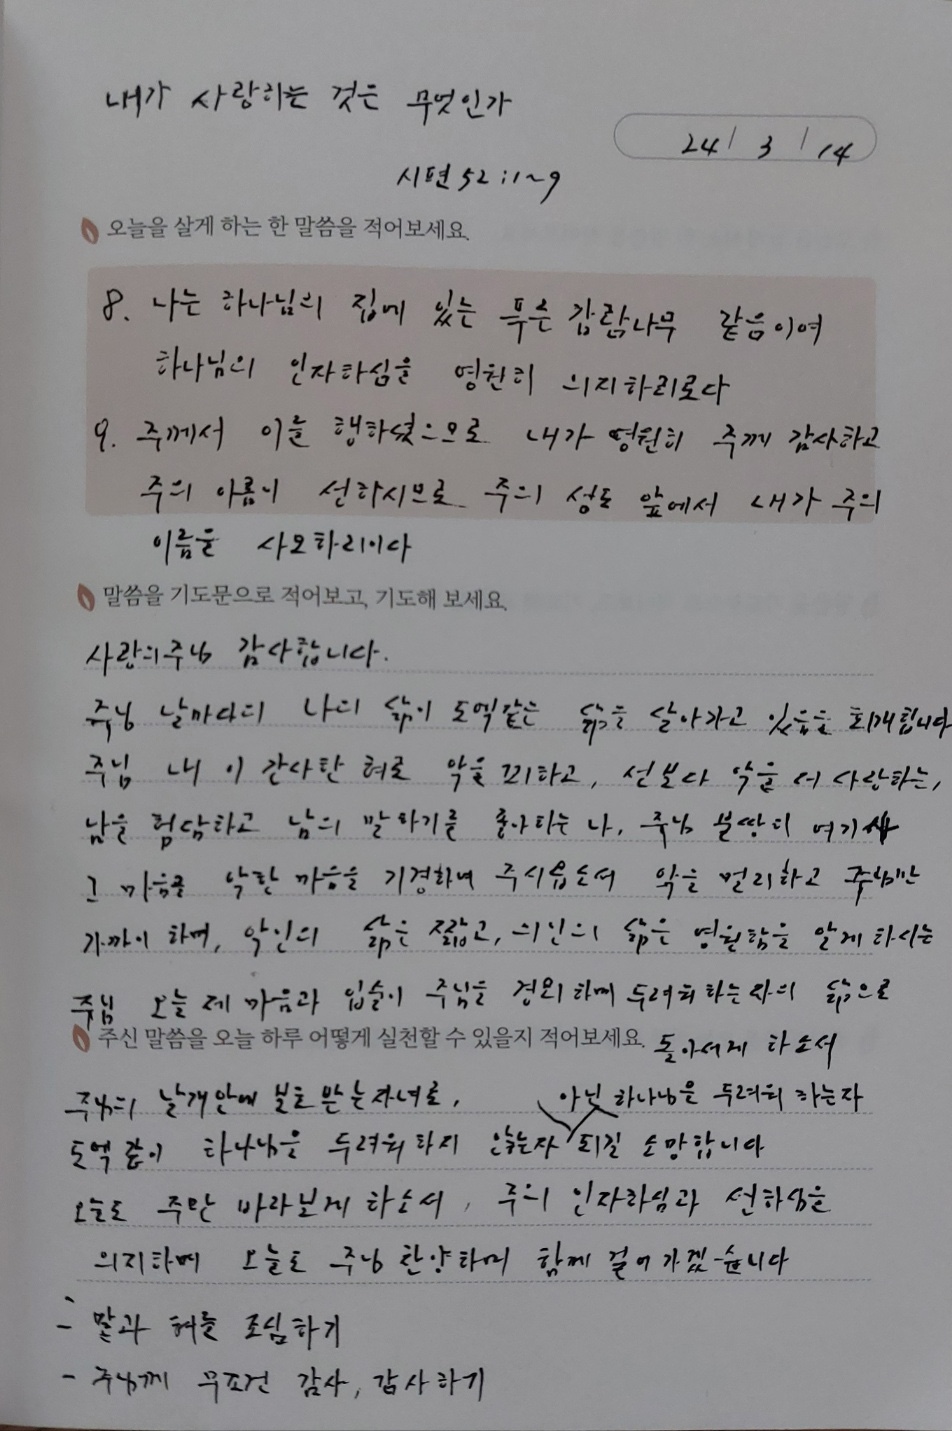 내가 사랑하는 것은 무엇인가
24 / 3 / 14
시편 52:1~9
오늘을 살게 하는 한 말씀을 적어보세요.
8. 나는 하나님의 집에 있는 푸른 감람나무 같음이여
하나님의 인자하심을 영원히 의지하리로다
9. 주께서 이를 행하셨으므로 내가 영원히 주께 감사하고
주의 이름이 선하시므로 주의 성도 앞에서 내가 주의
이름을 사모하리이다
말씀을 기도문으로 적어보고, 기도해 보세요.
사랑의주님 감사합니다.
주님 날마다의 나의 삶이 도엑같은 삶을 살아가고 있음을 회개합니다
주님 내 이 간사한 혀로 악을 꾀하고, 선보다 악을 더 사랑하는,
남을 험담하고 남의 말하기를 좋아하는 나, 주님 불쌍히 여기사
그 마음을 악한 마음을 기경하여 주시옵소서 악을 멀리하고 주님만
가까이 하며, 악인의 삶은 짧고, 의인의 삶은 영원함을 알게 하시는
주님 오늘 제 마음과 입술이 주님을 경외하며 두려워하는자의 삶으로
주신 말씀을 오늘 하루 어떻게 실천할 수 있을지 적어보세요.
돌아서게 하소서
주님의 날개안에 보호 받는 자녀로, 아닌 하나님을 두려워 하는자
도엑 같이 하나님을 두려워하지 않는자 되길 소망합니다
오늘도 주만 바라보게 하소서, 주의 인자하심과 선하심을
의지하며 오늘도 주님 찬양하며 함께 걸어가겠습니다
- 말과 혀를 조심하기
- 주님께 무조건 감사, 감사하기